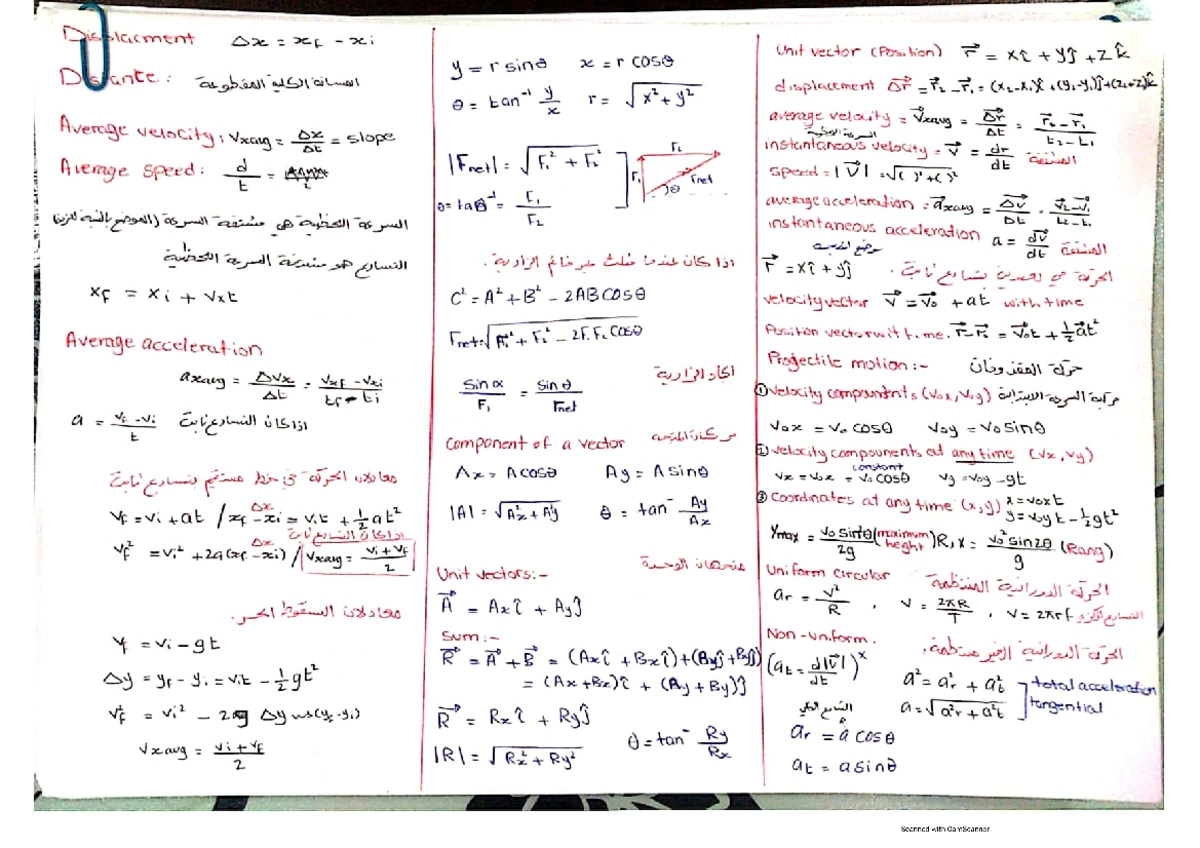 Displacment Δx = xf - xi
Distante: المسافة الكلية المقطوعة
Average velocity: Vxavg = Δx/Δt = slope
Average speed: d/t =
السرعة اللحظية هي مشتقة السرعة (الموضع بالنسبة للزمن)
التسارع هو مشتقة السرعة اللحظية
xf = xi + Vxt
Average acceleration
axavg = ΔVx/Δt = (Vxf - Vxi)/(tf - ti)
a = (Vf - Vi)/t اذا كان التسارع ثابت
معادلات الحركة في خط مستقيم بتسارع ثابت
Vf = Vi + at / xf - xi = Vit + 1/2 at²
Δx
اذا كان التسارع ثابت
Vf² = Vi² + 2a(xf - xi) / Vxavg = (Vi + Vf)/2
Δx
معادلات السقوط الحر.
Vf = Vi - gt
Δy = yf - yi = Vit - 1/2 gt²
Vf² = Vi² - 2g Δy (yf - yi)
Vxavg = (Vi + Vf)/2
y = r sinθ x = r cosθ
θ = tan⁻¹ y/x r = √(x² + y²)
|Fnet| = √(F₁² + F₂²)
θ = tan⁻¹ = F₁/F₂
F₂
F₁
θ
Fnet
اذا كان عندما مثلث غير قائم الزاوية.
C² = A² + B² - 2AB COSθ
Fnet = √(F₁² + F₂² - 2F₁F₂ COSθ)
ايجاد الزاوية
Sin α/F₁ = Sin θ/Fnet
Component of a vector مركبات المتجه
Ax = A cosθ Ay = A sinθ
|A| = √(Ax² + Ay²) θ = tan⁻ Ay/Ax
متجهات الوحدة
Unit vectors:-
A⃗ = Axî + Ayĵ
Sum:-
R⃗ = A⃗ + B⃗ = (Axî + Bxî) + (Ayĵ + Byĵ)
= (Ax + Bx)î + (Ay + By)ĵ
R⃗ = Rxî + Ryĵ
|R| = √(Rx² + Ry²) θ = tan⁻ Ry/Rx
Unit vector (Position) r⃗ = xî + yĵ + z k̂
displacement Δr⃗ = r⃗₂ - r⃗₁ = (x₂-x₁)î + (y₂-y₁)ĵ + (z₂+z)k̂
average velouity = V⃗xavg = Δr⃗/Δt = (r⃗₂ - r⃗₁)/(t₂ - t₁)
السرعة اللحظية
instantaneous velocity = V⃗ = dr/dt المشتقة
speed = |V⃗| = √( )² + ( )²
average acceleration = a⃗xavg = ΔV⃗/Δt = (V⃗₂ - V⃗₁)/(t₂ - t₁)
instantaneous acceleration a = dV⃗/dt المشتقة
r⃗ = xî + yĵ الحركة في بعدين بتسارع ثابت.
velocity vector V⃗ = V⃗₀ + at with time
Position vector with time. r⃗ - r⃗₁ = V⃗₀t + 1/2 a⃗t²
Projectile motion:- حركة المقذوفات
① Velocity compoundnts (V₀x, V₀y) مركبة السرعة الابتدائية
V₀x = V₀ COSθ V₀y = V₀ Sinθ
② velocity compounents at any time (Vx, Vy)
constant
Vx = V₀x = V₀ COSθ Vy = V₀y - gt
③ Coordinates at any time (x,y) x = V₀xt
y = V₀yt - 1/2 gt²
Ymax = V₀ sin²θ/2g (maximum height) R, x = V₀² sin2θ/g (Rang)
Uniform circular الحركة الدورانية المنتظمة
ar = V²/R , V = 2πR/T , V = 2πrf التسارع المركزي
Non-Uniform. الحركة الدورانية الغير منتظمة.
(at = d|V⃗|/dt)ˣ a² = ar² + at²
total acceleration
التسارع الكلي a = √(a²r + a²t) tangential
ar = a cosθ
at = a sinθ
Scanned with CamScanner